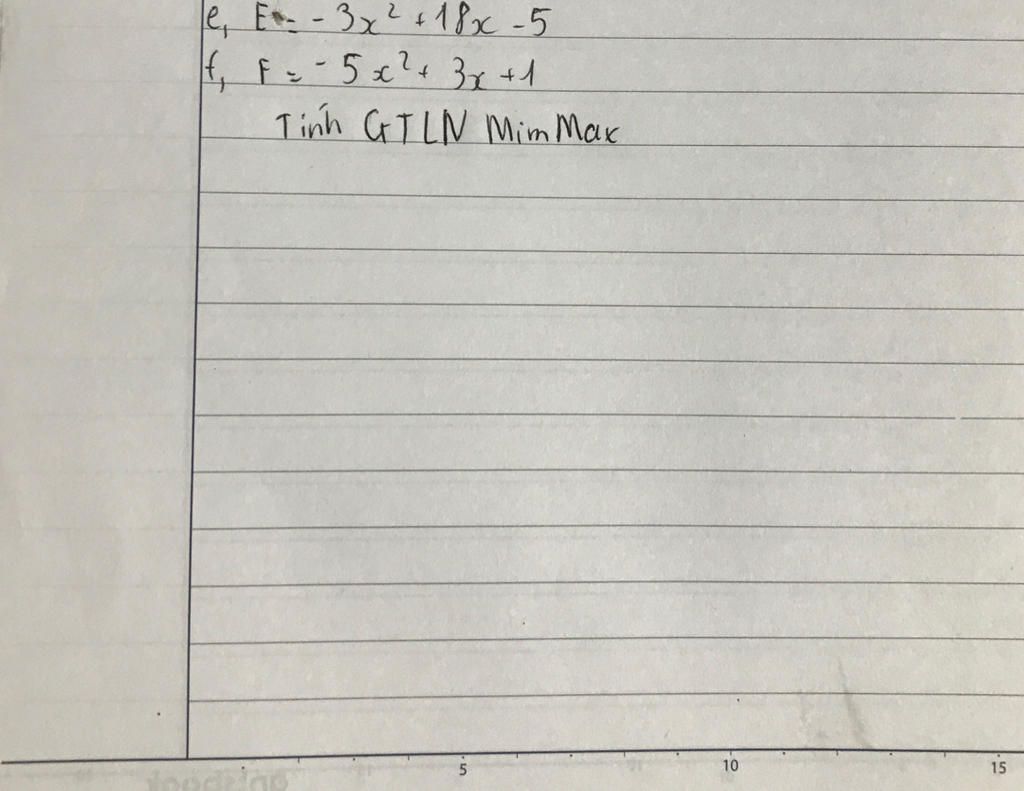 e, E = -3x² + 18x - 5
f, F = -5x² + 3x + 1
Tính GTLN Mim Max
5 10 15